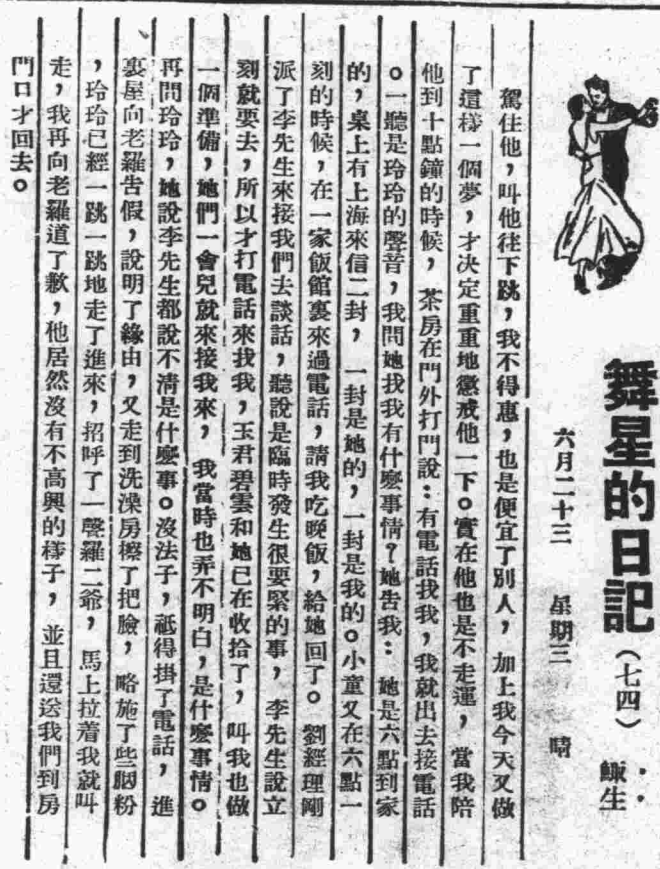 舞星的日記(七四)
鯫生
六月二十三 星期三 晴
駕住他,叫他往下跳,我不得惠,也是便宜了別人,加上我今天又做
了這樣一個夢,才决定重重地懲戒他一下。實在他也是不走運,當我陪
他到十點鐘的時候,茶房在門外打門說:有電話找我,我就出去接電話
。一聽是玲玲的聲音,我問她找我有什麼事情?她告我:她是六點到家
的,桌上有上海來信二封,一封是她的,一封是我的。小童又在六點一
刻的時候,在一家飯館裏來過電話,請我吃晚飯,給她回了。劉經理剛
派了李先生來接我們去談話,聽說是臨時發生很要緊的事,李先生說立
刻就要去,所以才打電話來找我,玉君碧雲和她已在收拾了,叫我也做
一個準備,她們一會兒就來接我來,我當時也弄不明白,是什麼事情。
再問玲玲,她說李先生都說不清是什麼事。沒法子,祇得掛了電話,進
裏屋向老羅告假,說明了緣由,又走到洗澡房擦了把臉,略施了些胭粉
,玲玲已經一跳一跳地走了進來,招呼了一聲羅二爺,馬上拉着我就叫
走,我再向老羅道了歉,他居然沒有不高興的樣子,並且還送我們到房
門口才回去。